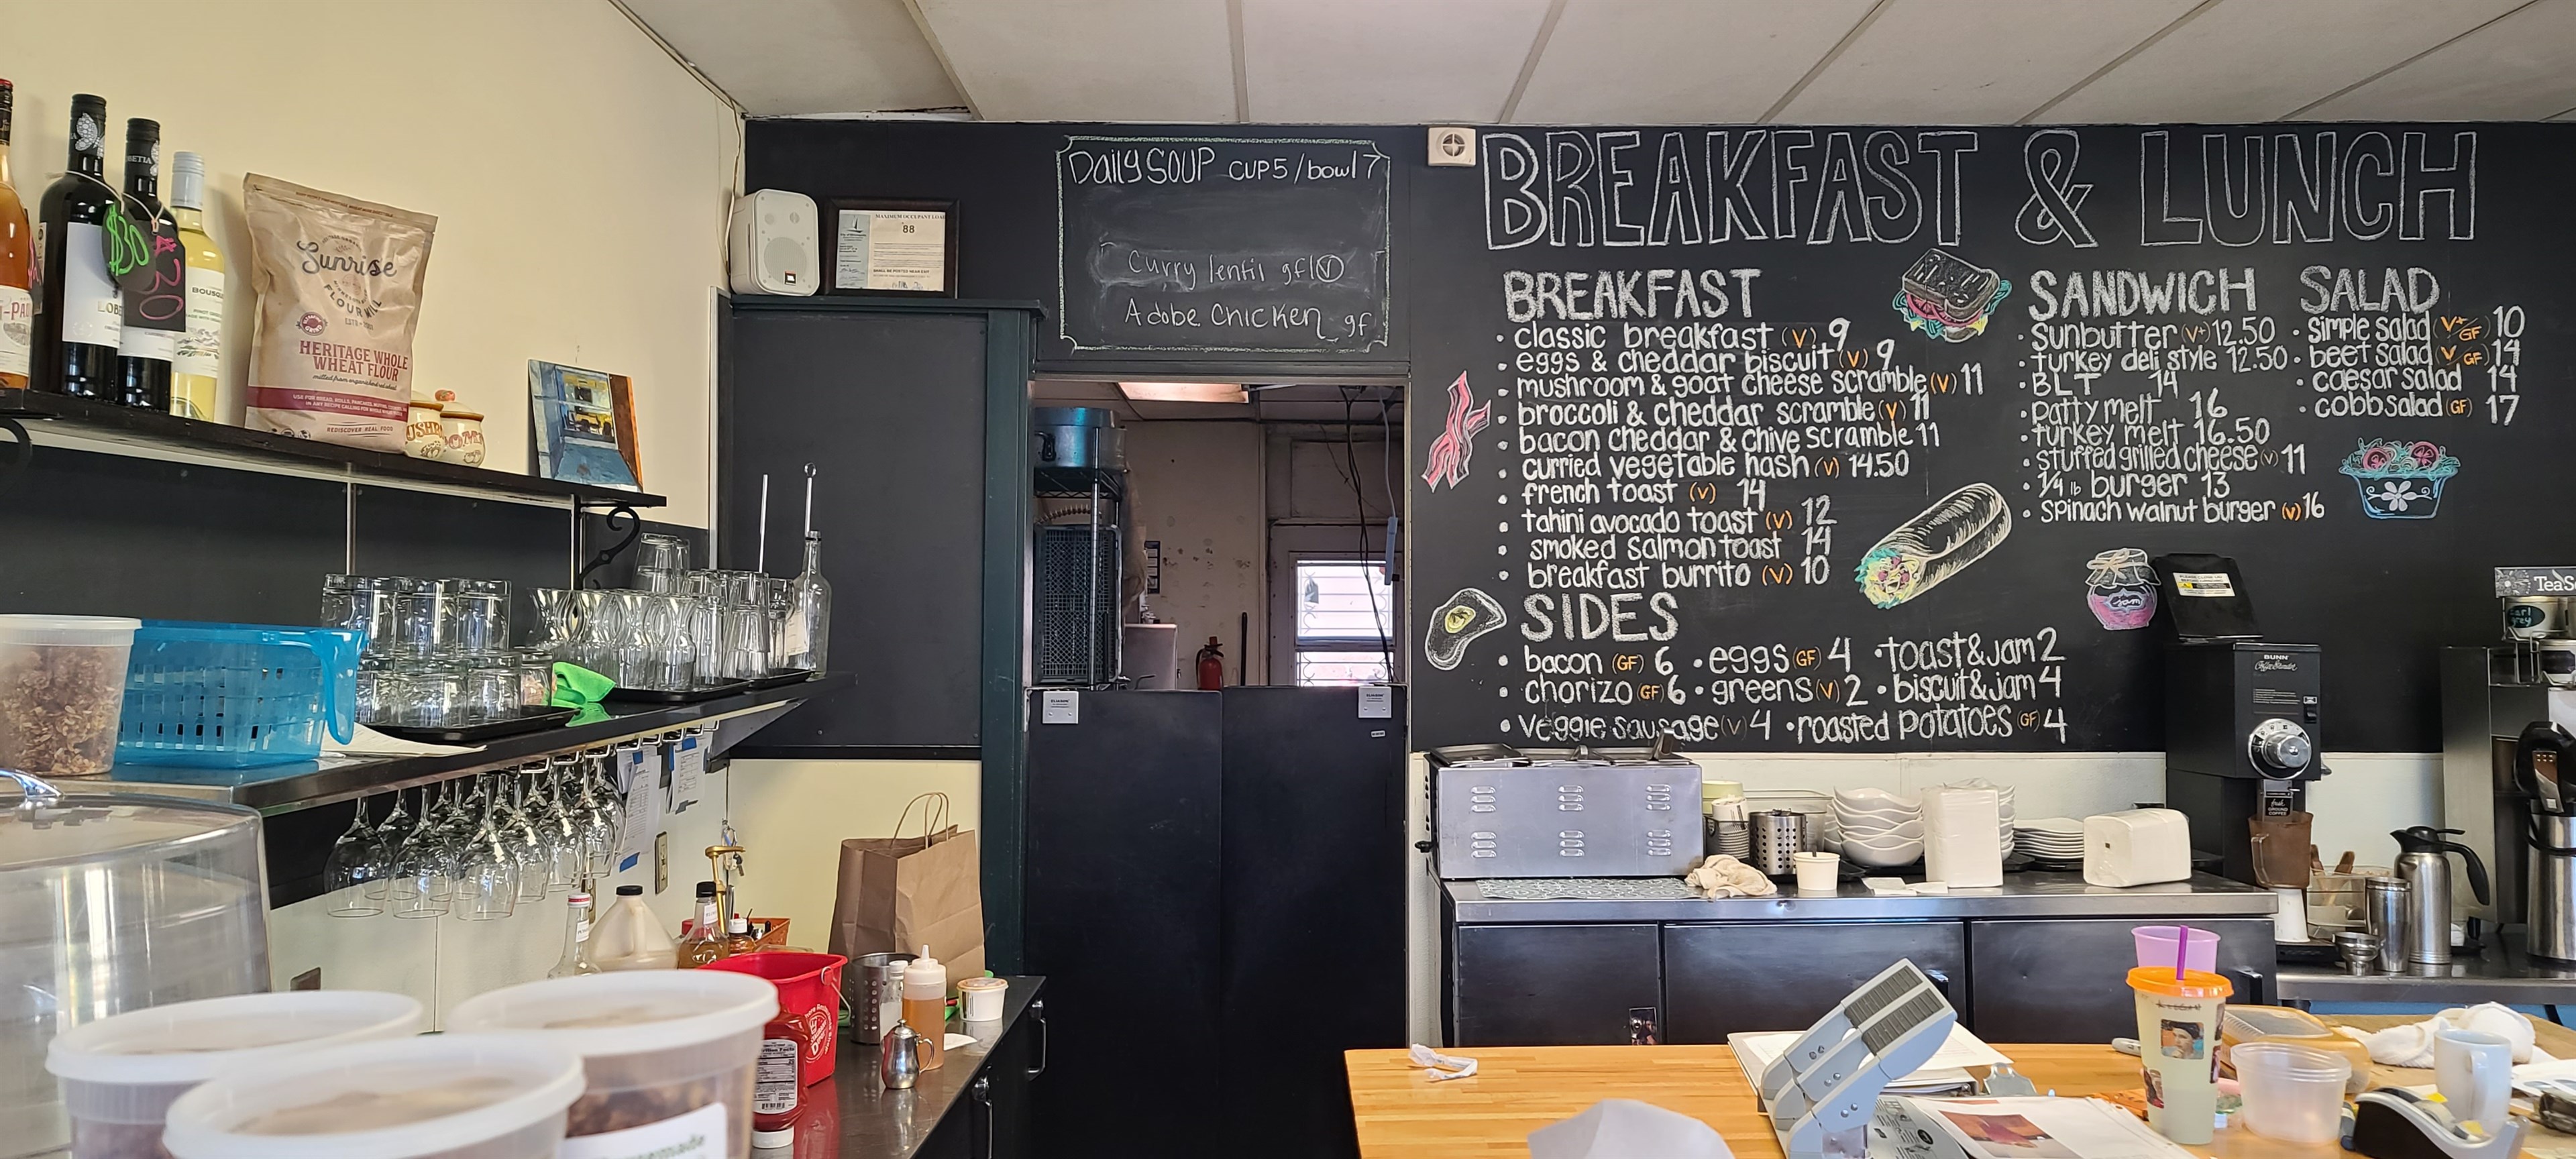 $30
$30
LOB
BETIA
BOUSQ
Sunrise
FLOUR MILL
HERITAGE WHOLE
WHEAT FLOUR
REDISCOVER REAL FOOD
MAXIMUM OCCUPANT LOAD
88
Daily SOUP CUP 5 / bowl 7
Curry lentil gf/V
Adobe Chicken gf
BREAKFAST & LUNCH
BREAKFAST
• classic breakfast (V) 9
• eggs & cheddar biscuit (V) 9
• mushroom & goat cheese scramble (V) 11
• broccoli & cheddar scramble (V) 11
• bacon cheddar & chive scramble 11
• curried vegetable hash (V) 14.50
• french toast (V) 14
• tahini avocado toast (V) 12
• smoked salmon toast 14
• breakfast burrito (V) 10
SIDES
• bacon (GF) 6 • eggs (GF) 4 • toast & jam 2
• chorizo (GF) 6 • greens (V) 2 • biscuit & jam 4
• veggie sausage (V) 4 • roasted potatoes (GF) 4
SANDWICH
• sunbutter (V+) 12.50
• turkey deli style 12.50
• BLT 14
• patty melt 16
• turkey melt 16.50
• stuffed grilled cheese (V) 11
• 1/4 lb burger 13
• spinach walnut burger (V) 16
SALAD
• simple salad (V+/GF) 10
• beet salad (V GF) 14
• caesar salad 14
• cobb salad (GF) 17
jam
BUNN
TeaS
Earl
grey